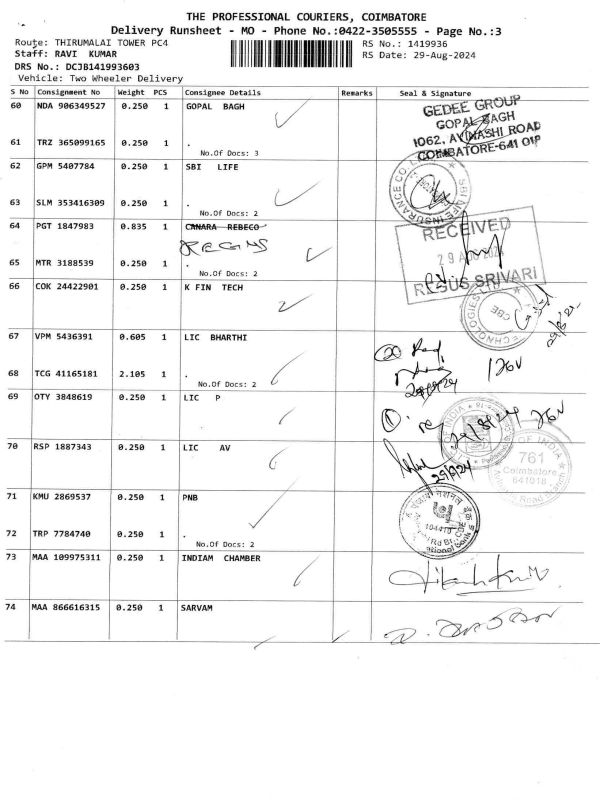 THE PROFESSIONAL COURIERS, COIMBATORE
Delivery Runsheet - MO - Phone No.:0422-3505555 - Page No.:3
Route: THIRUMALAI TOWER PC4 RS No.: 1419936
Staff: RAVI KUMAR RS Date: 29-Aug-2024
DRS No.: DCJB141993603
Vehicle: Two Wheeler Delivery
S No Consignment No Weight PCS Consignee Details Remarks Seal & Signature
60 NDA 906349527 0.250 1 GOPAL BAGH
GEDEE GROUP
GOPAL BAGH
1062, AVINASHI ROAD
COIMBATORE-641 018
61 TRZ 365099165 0.250 1 .
No.Of Docs: 3
62 GPM 5407784 0.250 1 SBI LIFE
SBI LIFE INSURANCE CO.
63 SLM 353416309 0.250 1 .
No.Of Docs: 2
64 PGT 1847983 0.835 1 CANARA REBECO
REGUS
RECEIVED
29 AUG 2024
REGUS SRIVARI
65 MTR 3188539 0.250 1 .
No.Of Docs: 2
66 COK 24422901 0.250 1 K FIN TECH
TECHNOLOGIES
CBE
67 VPM 5436391 0.605 1 LIC BHARTHI
68 TCG 41165181 2.105 1 .
No.Of Docs: 2
69 OTY 3848619 0.250 1 LIC P
70 RSP 1887343 0.250 1 LIC AV
OF INDIA
761
Coimbatore
641018
29/8/24
71 KMU 2869537 0.250 1 PNB
72 TRP 7784740 0.250 1 .
No.Of Docs: 2
73 MAA 109975311 0.250 1 INDIAM CHAMBER
74 MAA 866616315 0.250 1 SARVAM